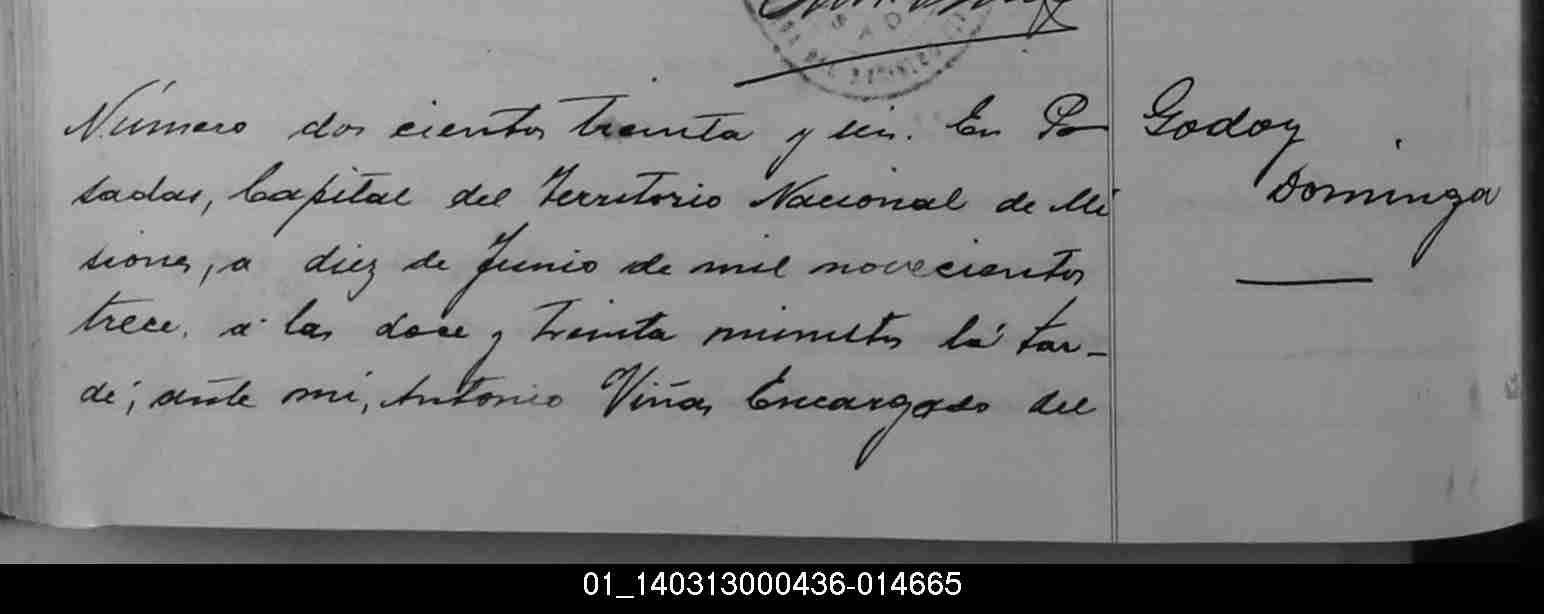 Número dos cientos treinta y seis. En Po
sadas, Capital del Territorio Nacional de Mi
siones, a diez de Junio de mil novecientos
trece. a las doce y treinta minutos la tar-
de, ante mi, Antonio Viñas Encargado del
Godoy
Dominga
01_140313000436-014665